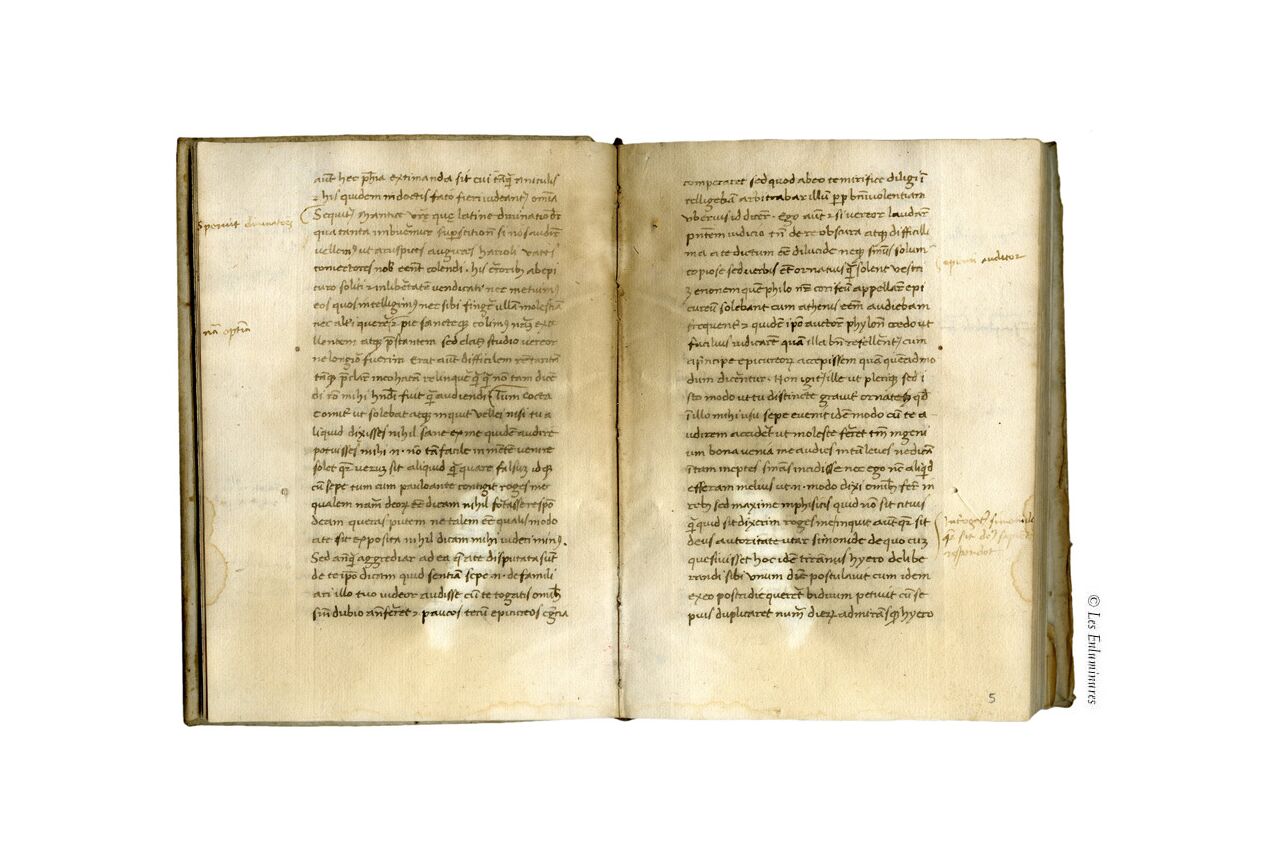 aūt hec phīa extimanda sit cui tāq̄ aniculis
⁊ his quidem indoctis fato fieri videantꝰ omīa
Sequitꝰ mantice vrā que latine divinatio dr̄
Spernit divinatores
qua tanta imbueremur supstitiōn si nos audire
vellemꝰ ut aruspices augures harioli vates
coniectores nob eēnt colendi. his erroribꝰ ab epi
curo soliti ⁊ in libertatē vendicati nec metuimꝰ
eos quos intelligimꝰ nec sibi fingere ullā molestiā
nec alteri querere ⁊ pie sancteqꝫ colimꝰ nām exce
nām optim
llentem atqꝫ prstantem sed elatꝰ studio vereor
ne longior fuerim Erat aūt difficilem rē tantā
tāqꝫ p̄clarē incohatā relinquere q̄q̄ nō tam dicē
di rō mihi hnd̄i fuit q̄ audiendi Tum cocta
comiter ut solebat atqꝫ inquit Vellei nisi tu a
liquid dixisses nihil sane ex me quidē audire
potuisses mihi n̄. nō tā facile in mētē venire
solet qr̄ verum sit aliquid q̄ quare falsum idqꝫ
cū sepe tum cum pauloante contigit roges me
qualem nām deoꝝ eē dicam nihil fortasse respō
deam queras putem ne talem eē qualis modo
a te sit exposita nihil dicam mihi videri minꝰ.
Sed anq̄ aggrediar ad ea q̄ a te disputata sūt
de te ipō dicam quid sentiā sepe n̄. de famili
ari illo tuo videor audisse cū te togatis omībꝰ
sīn dubio anferret ⁊ paucos tecū epicureos egrecia
compararet sed quod abeo te mirifice diligi ī
telligebā arbitrabar illū pp̄ bn̄ivolentiam
uberius id dicere. Ego aūt ⁊ si vereor laudare
pn̄tem iudicio tn̄ de re obscura atqꝫ difficili
ma a te dictum eē dilucide neqꝫ sm̄is solum
copiose sed verbis eē ornatius q̄ solent vestri
auditor
zenonem quē philo nr̄ corifeū appellare epi
cureū solebant cum athenis eēm audiebam
frequenter ⁊ quidē ipō auctore phylone credo ut
facilius iudicarē quā illa bn̄ refellentꝰ cum
a principe epicureoꝝ accepissem quā quēadmo
dum dicerentur. Non igitꝰ ille ut pleriqꝫ sed i
sto modo ut tu distincte graviter ornateqꝫ qd̄
ī illo mihi usu sepe evenit idē modo cū te a
udirem accideret ut moleste ferret tm̄ ingeni
um bona venia me audies in tā leves ne dicā
ī tam ineptes sm̄as incidisse nec ego nc̄ aliqd̄
afferam melius ut n̄. modo dixi omībꝰ fere in
rebꝰ sed maxime in phisicis quid nō sit citius
q̄ quid sit dixerim roges me inquit aut qr̄ sit
Intrrogatꝰ simonide
deus autoritate utar simonide de quo cum
qr̄ sit dꝰ sapienter
quesivisset hoc idē tirannus hyero delibe
respondet
randi sibi unum diē postulavit cum idem
ex eo postridie quereret biduum petivit cū se
pius duplicaret num̄ dieꝝ admirāsqꝫ hyero
5
© Les Enluminures